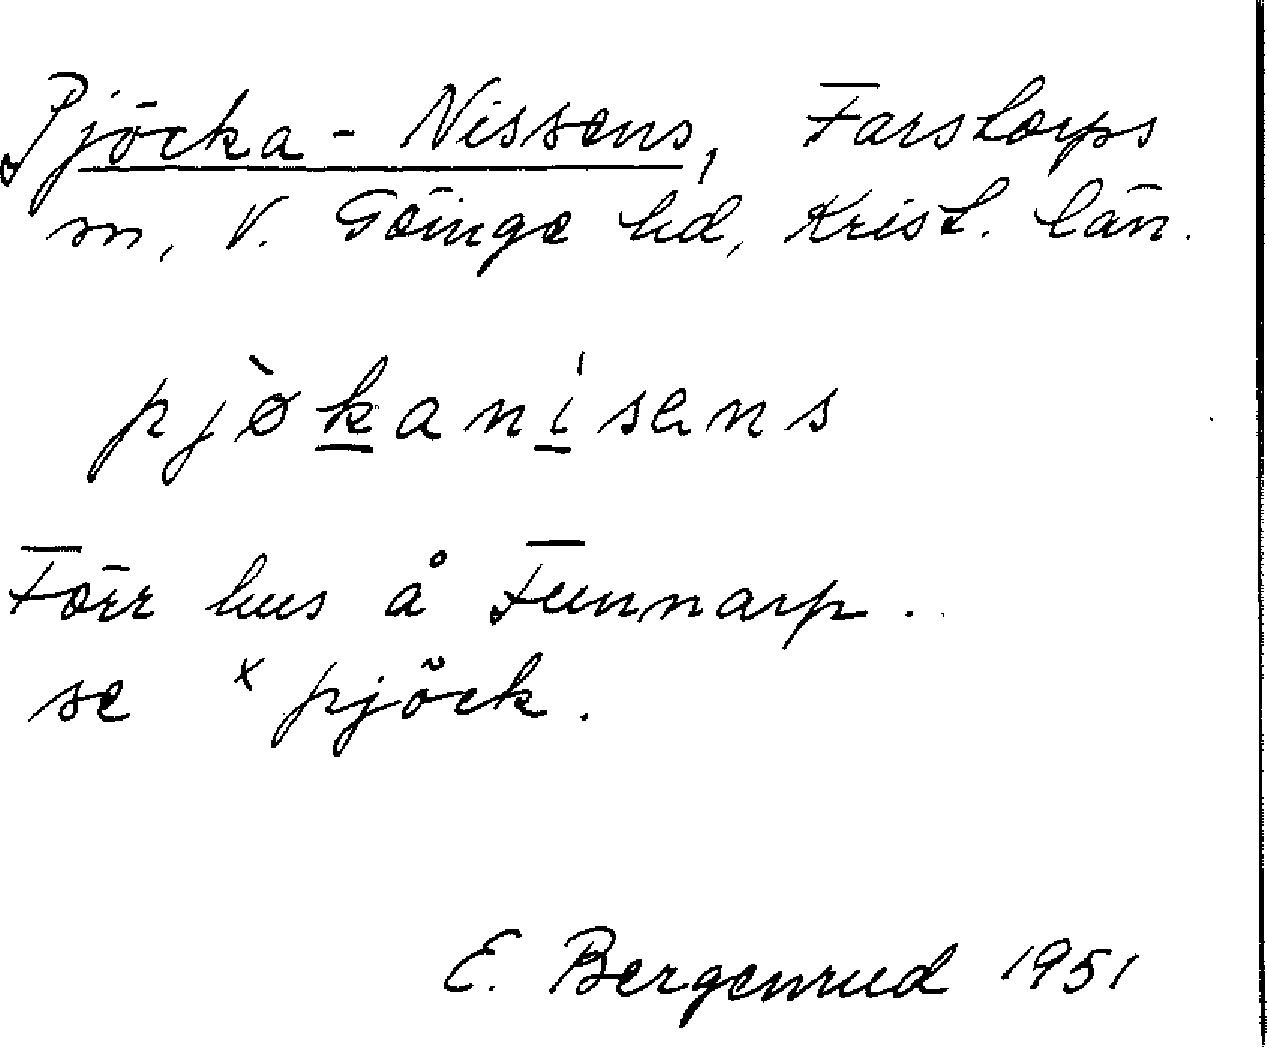 Pjöcka-Nissens, Farstorps
sn, V. Göinge hd, Krist. län.
pjø̀kanısens
Förr hus å Funnarp.
se ˣpjöck.
E. Bergenrud 1951